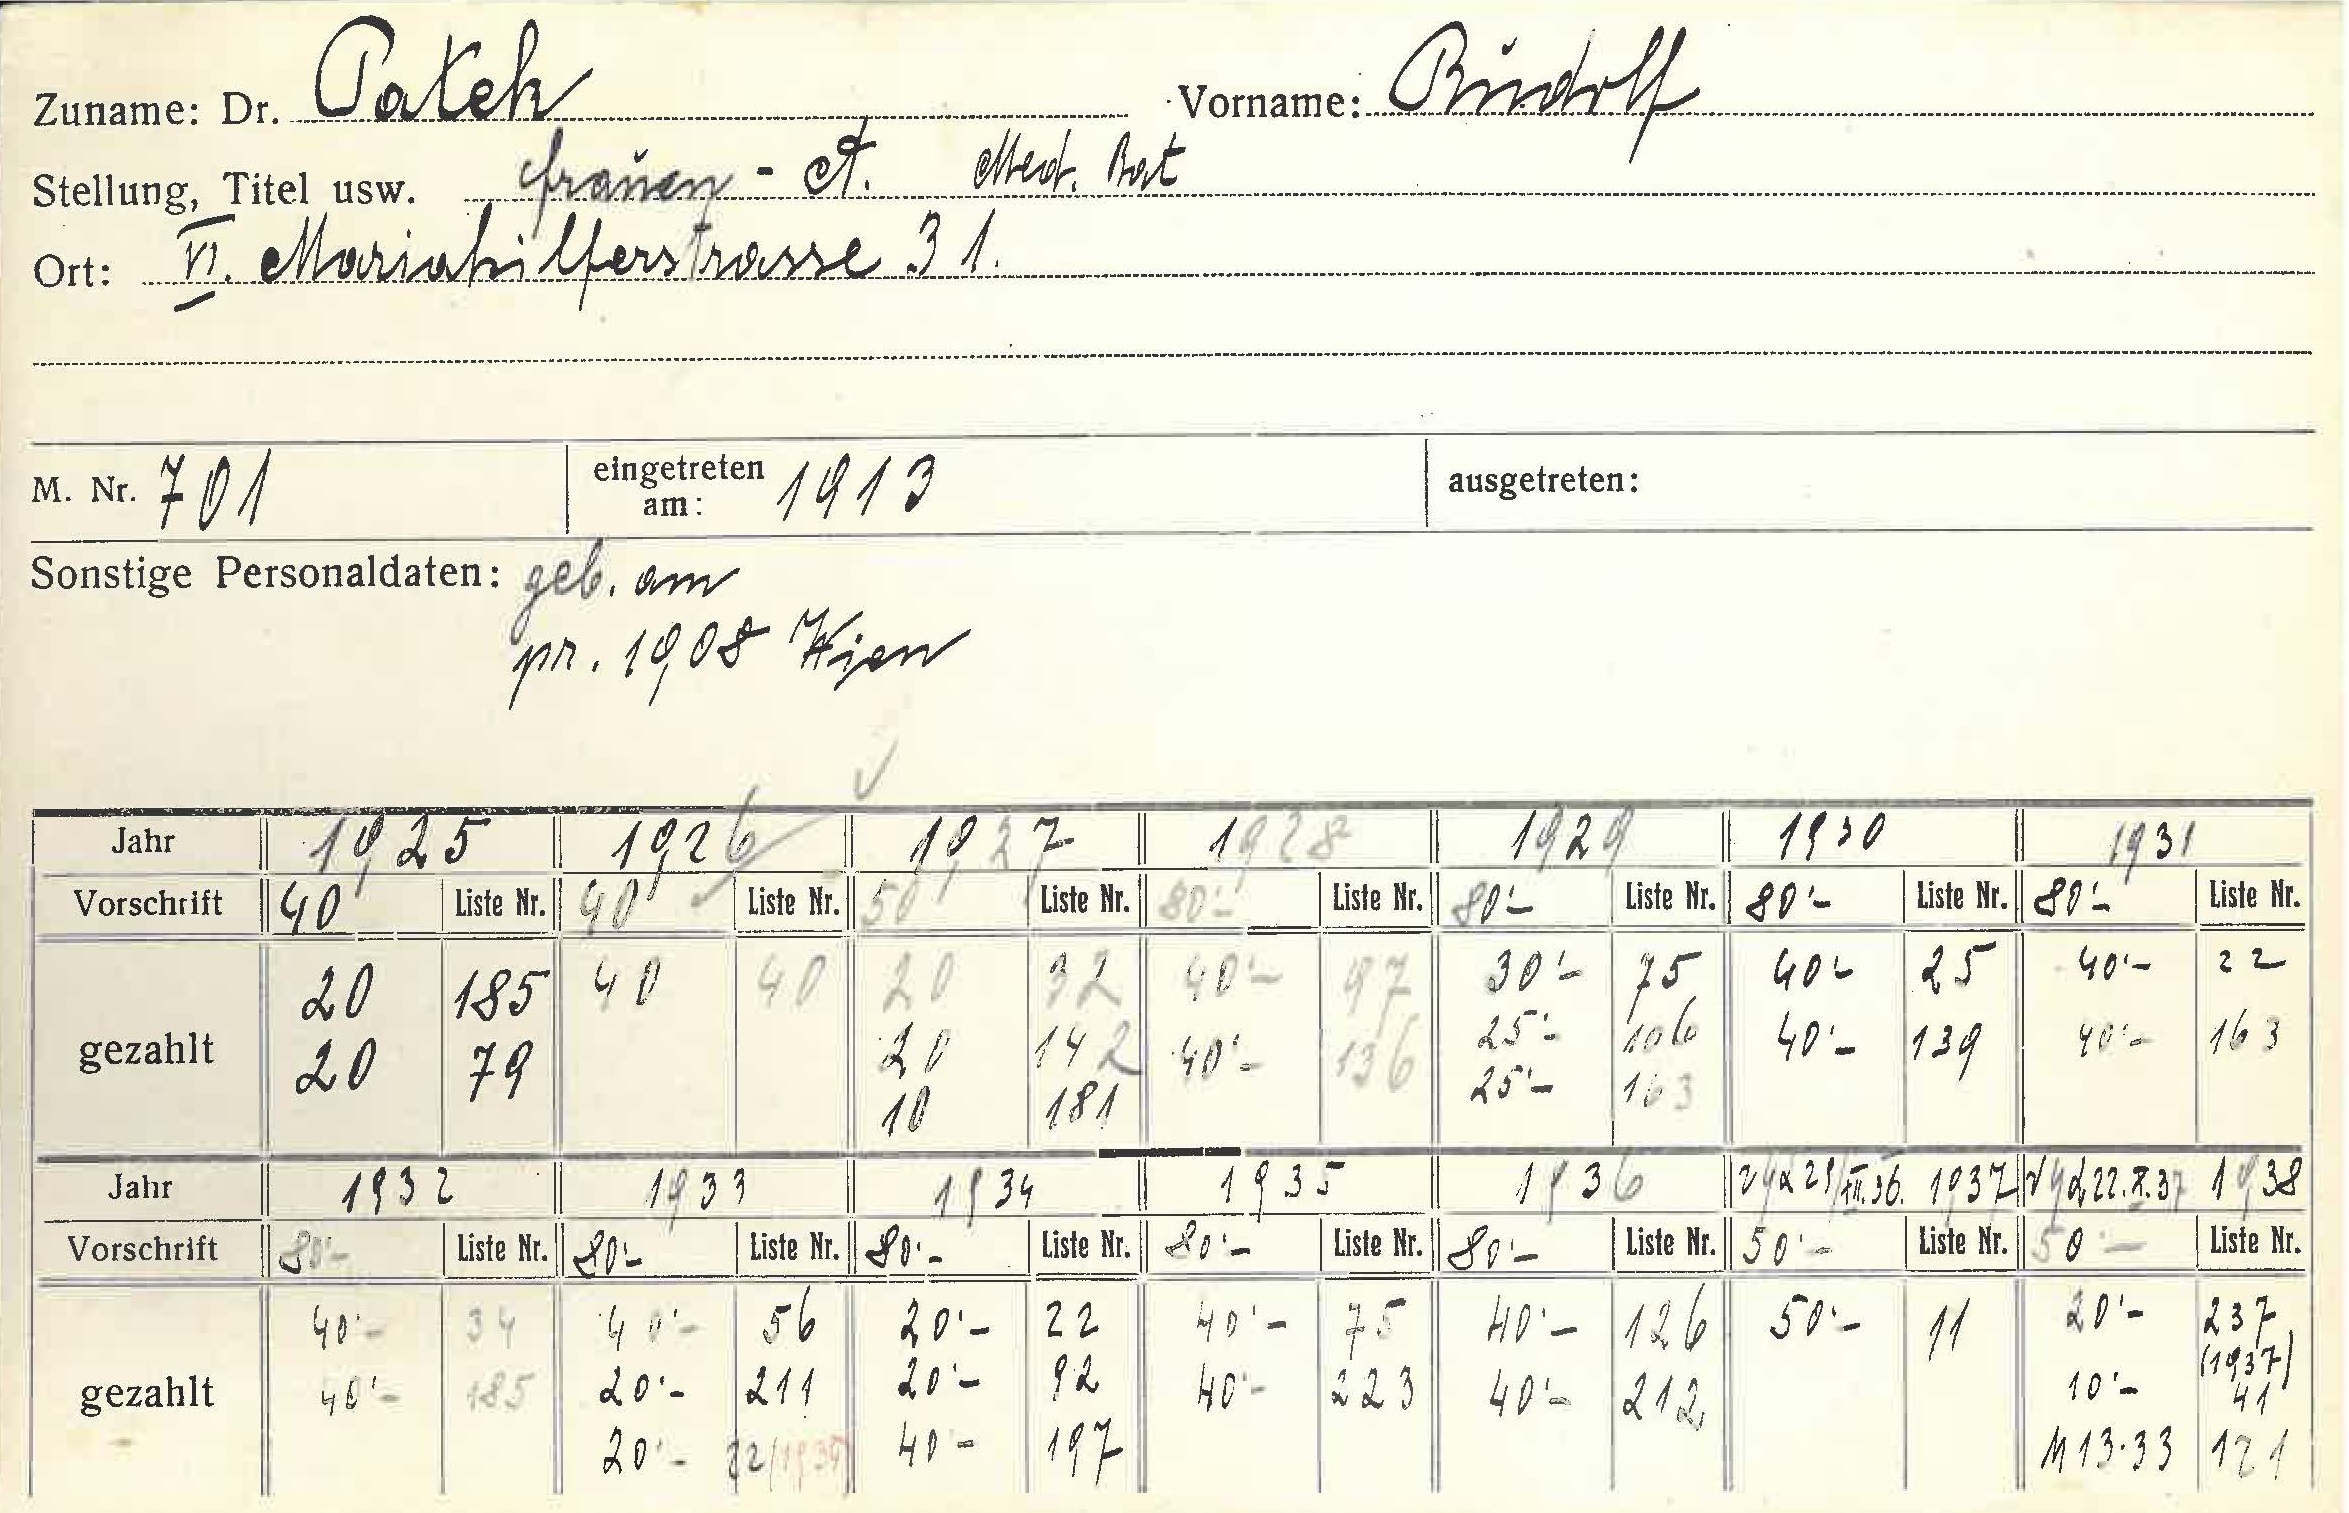 Zuname: Dr. Patek Vorname: Rudolf
Stellung, Titel usw. Frauen - A. Med. Rat
Ort: VI. Mariahilferstrasse 31.
M. Nr. 701 eingetreten am: 1913 ausgetreten:
Sonstige Personaldaten: geb. am
pr. 1908 Wien
Jahr 1925 1926 1927 1928 1929 1930 1931
Vorschrift 40 Liste Nr. 40 Liste Nr. 50 Liste Nr. 80'- Liste Nr. 80'- Liste Nr. 80'- Liste Nr. 80'- Liste Nr.
20 185 40 40 20 32 40'- 97 30'- 75 40'- 25 40'- 22
gezahlt 20 79 20 142 40'- 136 25'- 106 40'- 139 40'- 163
10 181 25'- 163
Jahr 1932 1933 1934 1935 1936 29/XII.36. 1937 22.X.37 1938
Vorschrift 80'- Liste Nr. 80'- Liste Nr. 80'- Liste Nr. 80'- Liste Nr. 80'- Liste Nr. 50'- Liste Nr. 50 - Liste Nr.
40'- 34 40'- 56 20'- 22 40'- 75 40'- 126 50'- 11 20'- 237
(1937)
gezahlt 40'- 185 20'- 211 20'- 92 40'- 223 40'- 212 10'- 41
20'- 22/ 40'- 197 M 13.33 121